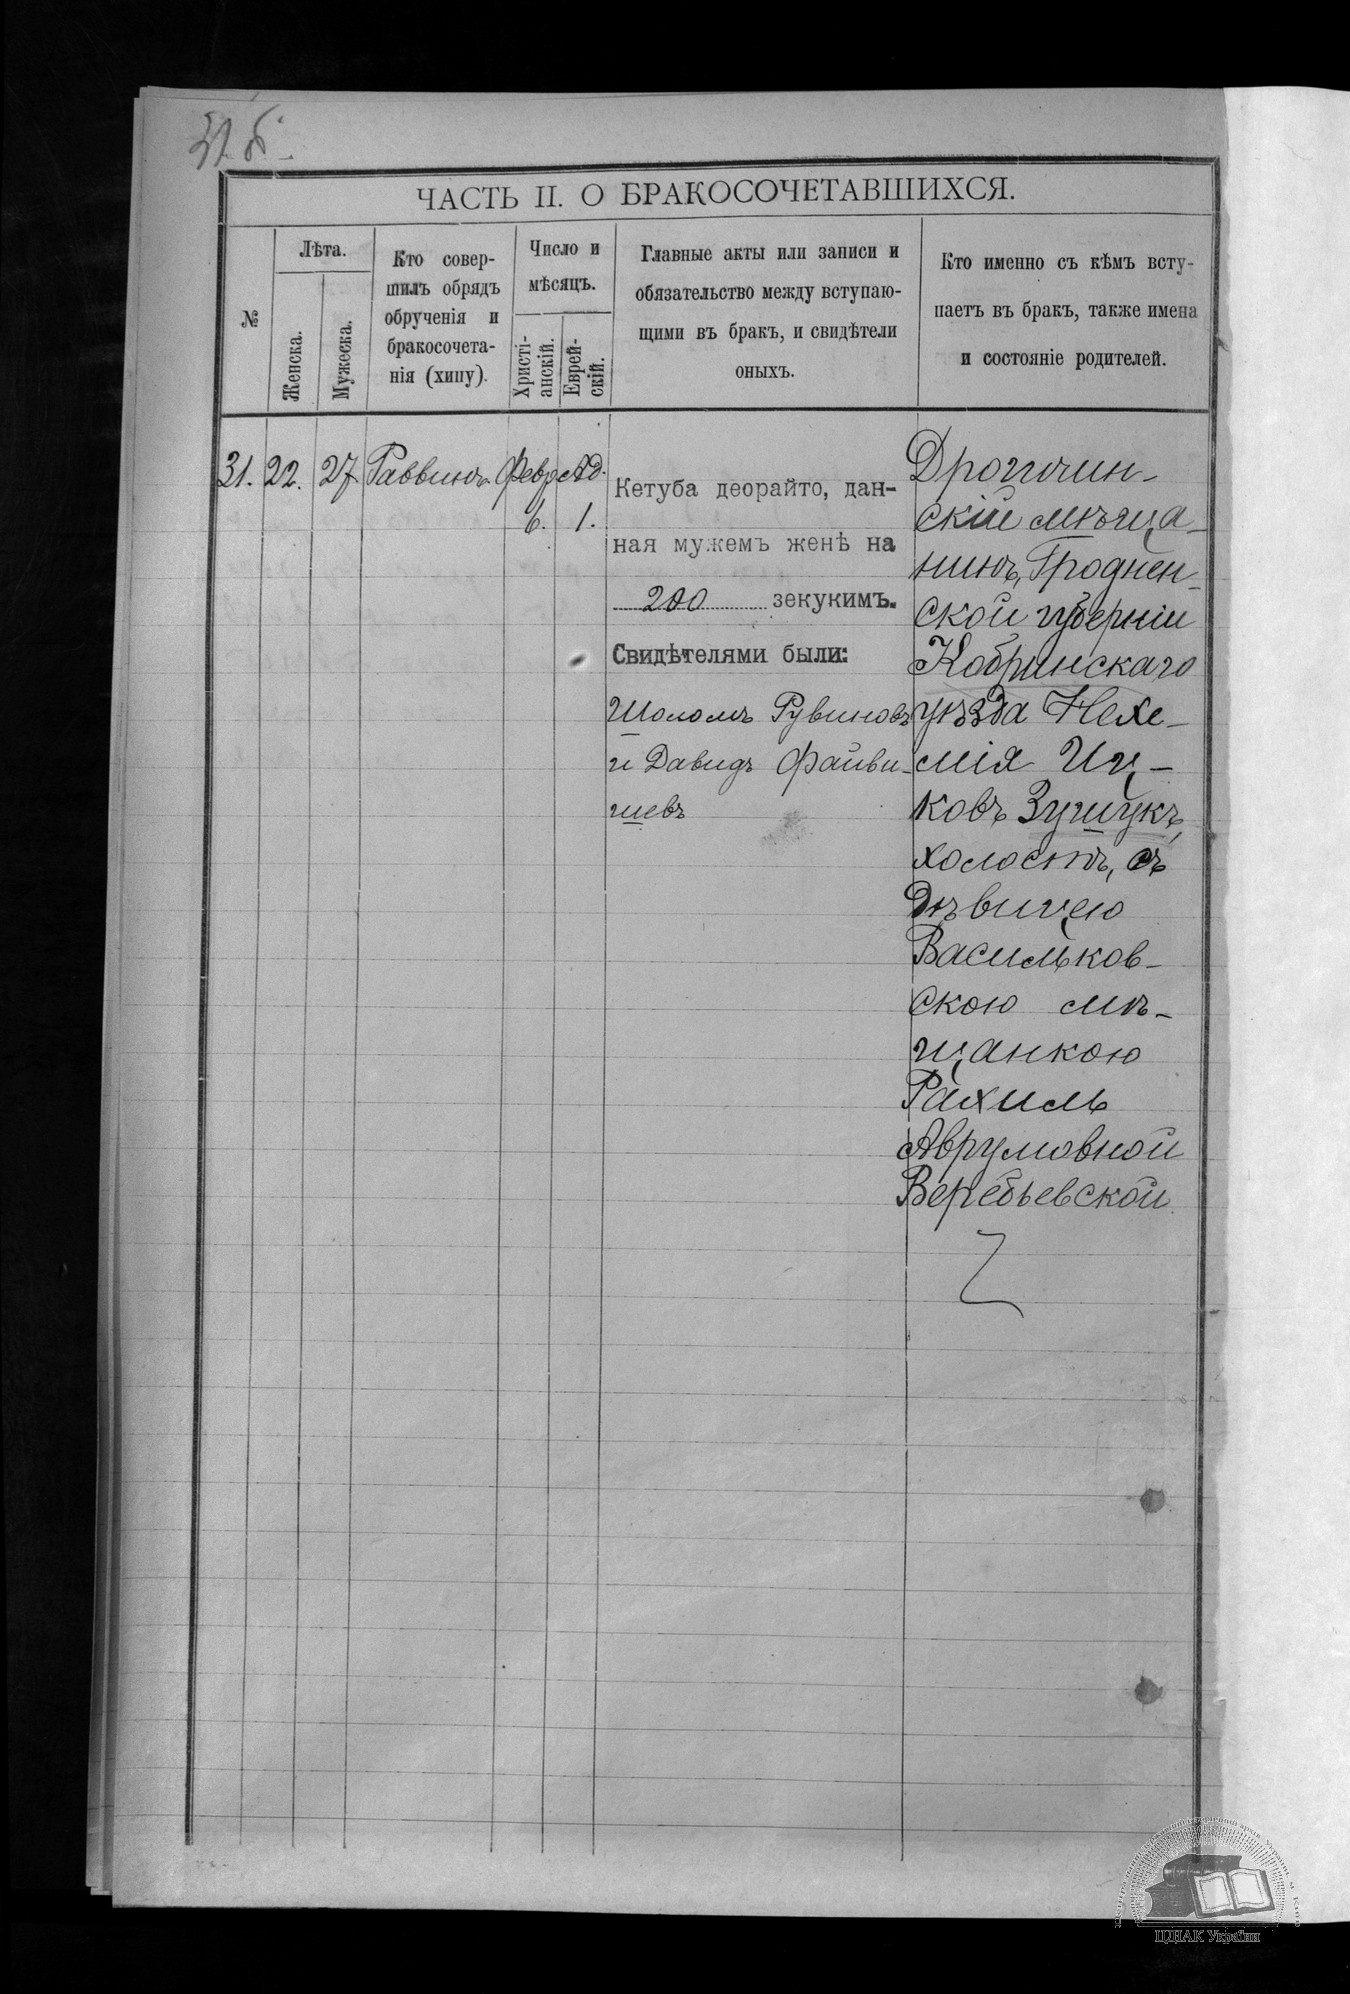 ЧАСТЬ II. О БРАКОСОЧЕТАВШИХСЯ.
№
Лѣта.
Женска.
Мужеска.
Кто совер-
шилъ обрядъ
обрученія и
бракосочета-
нія (хипу).
Число и
мѣсяцъ.
Христі-
анскій.
Еврей-
скій.
Главные акты или записи и
обязательство между вступаю-
щими въ бракъ, и свидѣтели
оныхъ.
Кто именно съ кѣмъ всту-
паетъ въ бракъ, также имена
и состояніе родителей.
31. 22. 27 Раввинъ Февр. Ад.
6. 1.
Кетуба деорайто, дан-
ная мужемъ женѣ на
200 зекукимъ.
Свидѣтелями были:
Шоломъ Рувиновъ
и Давидъ Файви-
шевъ
Дрогичин-
скій мѣща-
нинъ, Гроднен-
ской губерніи
Кобринскаго
уѣзда Нехе-
мія Иц-
ковъ Зушукъ,
холостъ, съ
дѣвицею
Васильков-
скою мѣ-
щанкою
Рахиль
Аврумовной
Веребьевской
ЦДІАК України